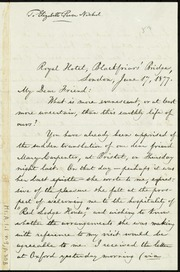 To Elizabeth Pease Nichol
Royal Hotel, Blackfriars' Bridge,
London, June 17, 1877.
My Dear Friend:
What is more evanescent, or at best
more uncertain, than this earthly life of
ours?
You have already been apprised of
the sudden translation of our dear friend
Mary Carpenter, at Bristol, on Thursday
night last. On that day—perhaps it was
her last epistle—she wrote to me expres-
sive of the pleasure she felt at the pros-
pect of welcoming me to the hospitality of
"Red Lodge House," and wishing to know
whether the arrangements she was making
with reference to my visit would be
agreeable to me. I received the letter
at Oxford yesterday morning (via